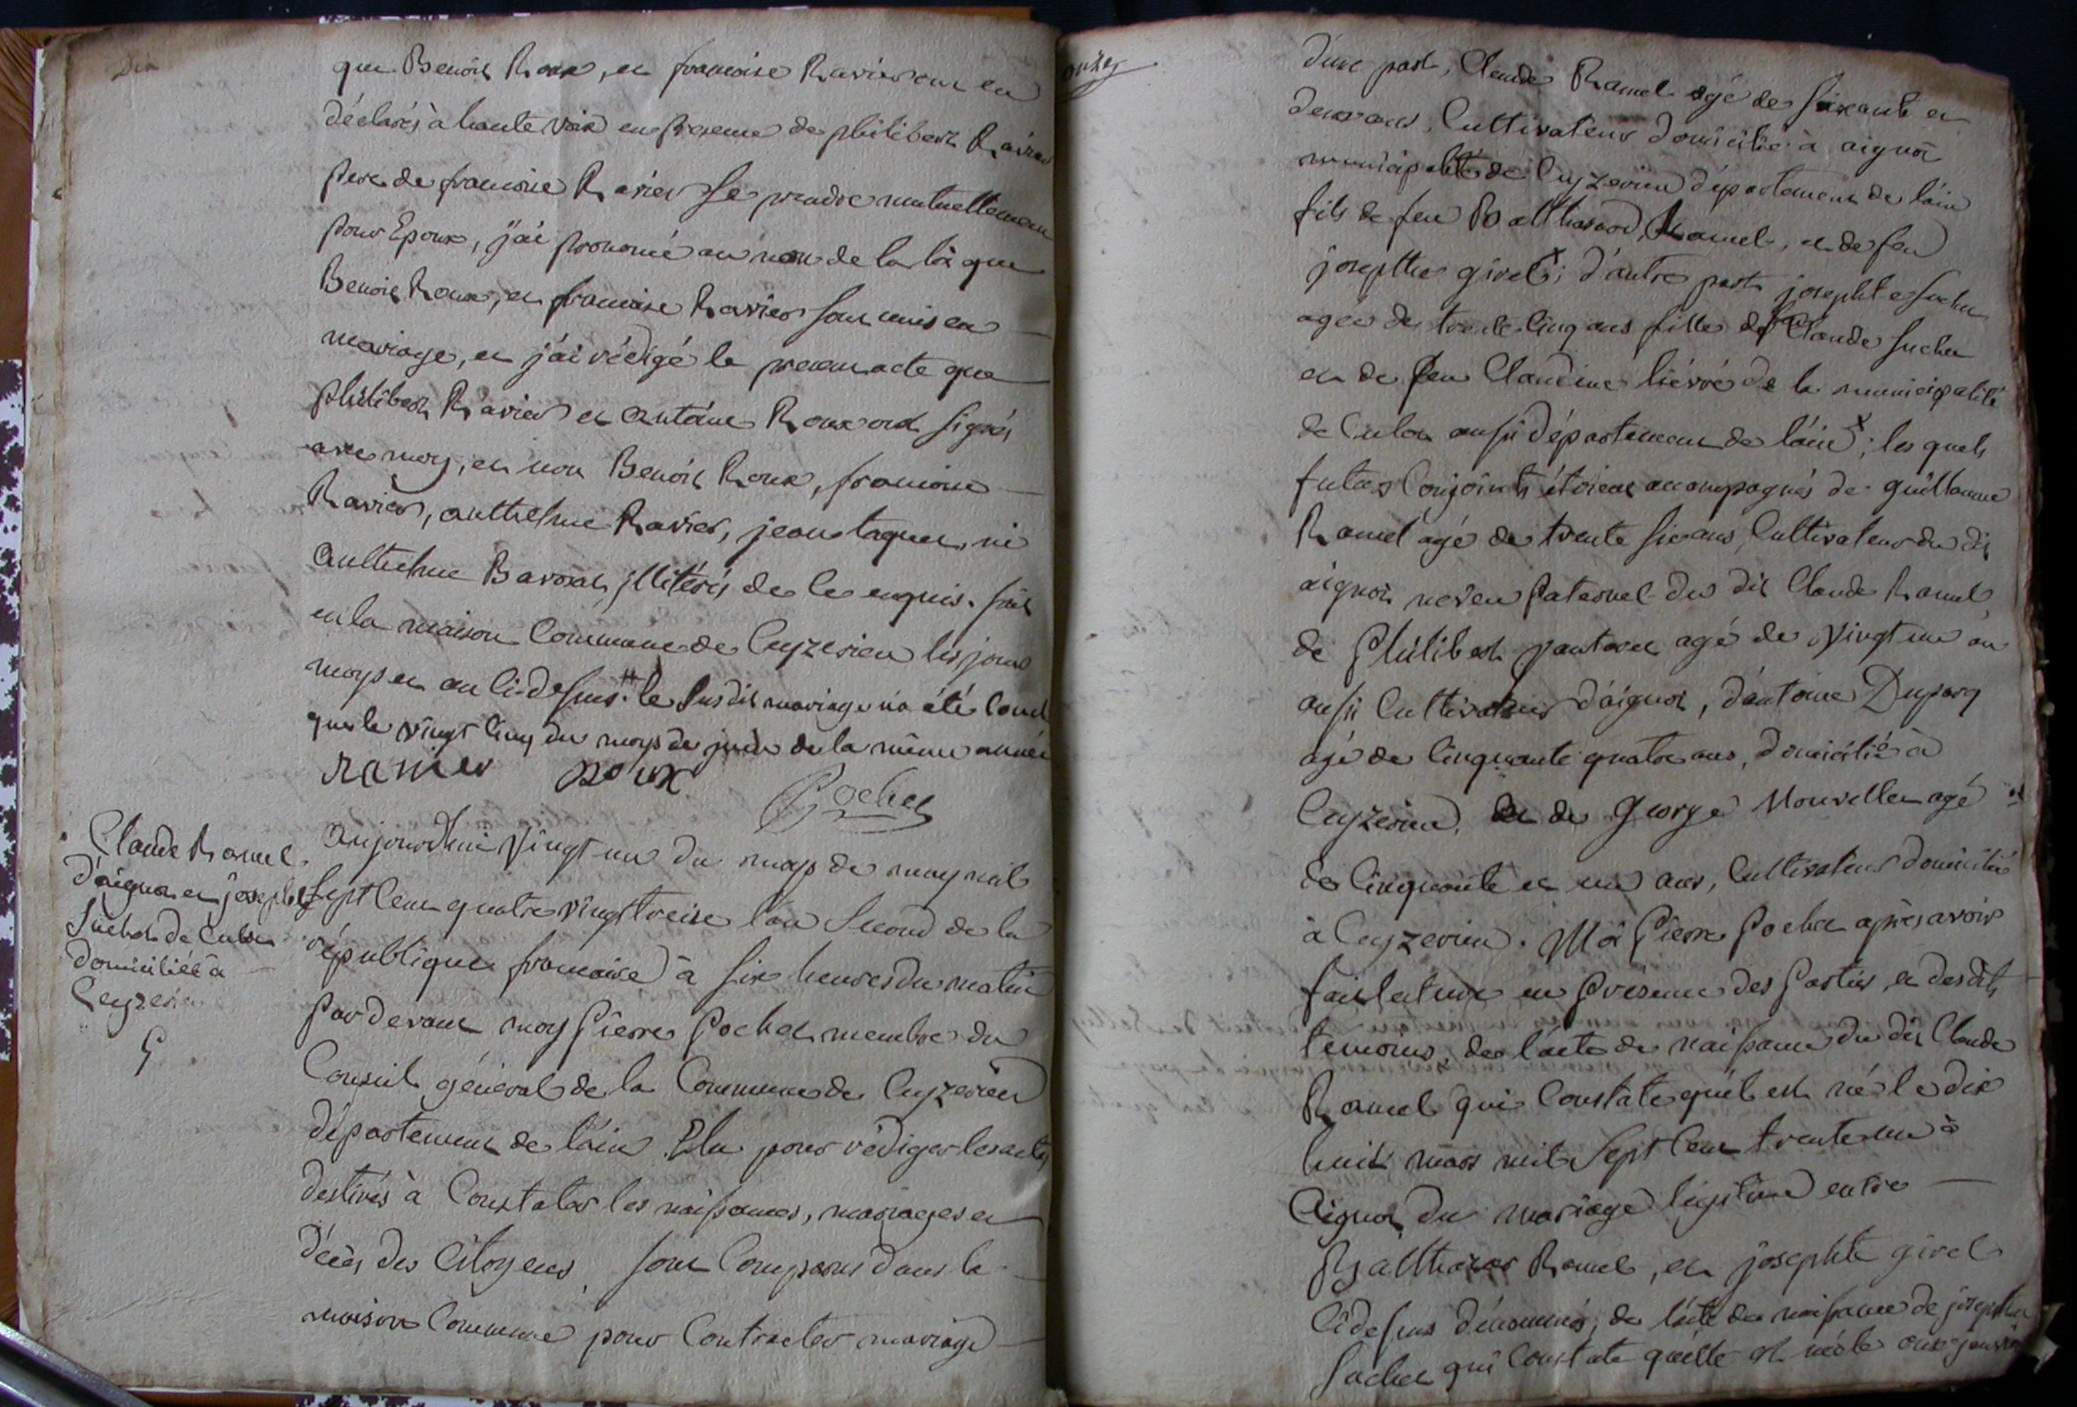 Dix
que Benoit Roux, et francoise Ravier ont eu
déclarés à haute voix en presence de philibert Ravier
pere de francoise Ravier se prendre mutuellement
pour Epoux, j'ai prononcé au nom de la loi que
Benoit Roux, et francoise Ravier sont unis en
mariage, et j'ai rédigé le present acte que
philibert Ravier et antoine Roux ont signés
avec moy, et non Benoit Roux, francoise
Ravier, anthelme Ravier, jean taquet, ni
anthelme Baroxat, illiterés de ce enquis. fait
en la maison Commune de Ceyzerieu les jour
moys et an ci-dessus. # le susdit mariage n'a été Conclu
que le vingt cinq du moys de juin de la même année
Ravier Roux
Pochet
Claude Ramel
d'aignoz et josephte
Suchet de Culoz
domiciliée à
Ceyzerieu
5
aujourdhui vingt un du moys de may mil
sept cent quatre vingt treise l'an second de la
république francoise à six heures du matin
par devant moy Pierre Pochet membre du
Conseil général de la Commune de Ceyzerieu
département de l'ain Elu pour rédiger les actes
destinés à Constater les naissances, mariages et
décès des Citoyens, sont Comparus dans la
maison Commune pour Contracter mariage
onze
d'une part, Claude Ramel agé de soixante et
deux ans, Cultivateur domicilié à aignoz
municipalité de Ceyzerieu département de l'ain
fils de feu Balthasard Ramel, et de feu
josephte givel; d'autre part josephte Suchet
agée de trente cinq ans fille de feu Claude Suchet
et de feu Claudine liévré de la municipalité
de Culoz aussi département de l'ain; les quels
futurs Conjoints étoient accompagnés de guillaume
Ramel agé de trente six ans, Cultivateur du dit
aignoz neveu Paternel du dit Claude Ramel,
de Philibert vautaret agé de vingt un an
aussi Cultivateur d'aignoz, d'antoine Duparq
agé de Cinquante quatre ans, domicilié à
Ceyzerieu, et de George Mouvellet agé
de Cinquante et un ans, Cultivateur domicilié
à Ceyzerieu. Moi Pierre Pochet après avoir
fait lecture en Présence des Parties, et desdits
temoins, de l'acte de naissance du dit Claude
Ramel qui Constate qu'il est né le dix
huit mars mil sept cent trente un à
aignoz du mariage légitime entre
Balthazar Ramel, et josephte givel
ci dessus dénommés, de l'acte de naissance de josephte
Suchet qui Constate quelle est née le onze janvier